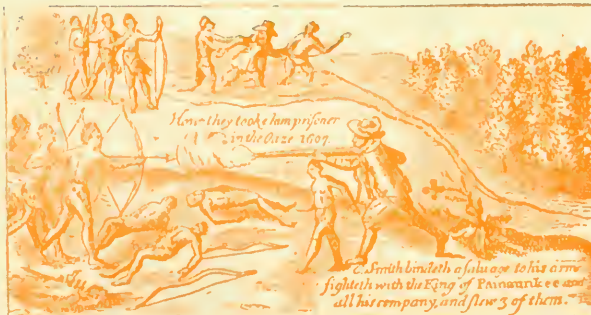 How they tooke him prisoner
in the Oaze 1607
C. Smith bindeth a saluage to his arme
fighteth with the King of Pamaunkee and
all his company, and slew 3 of them.